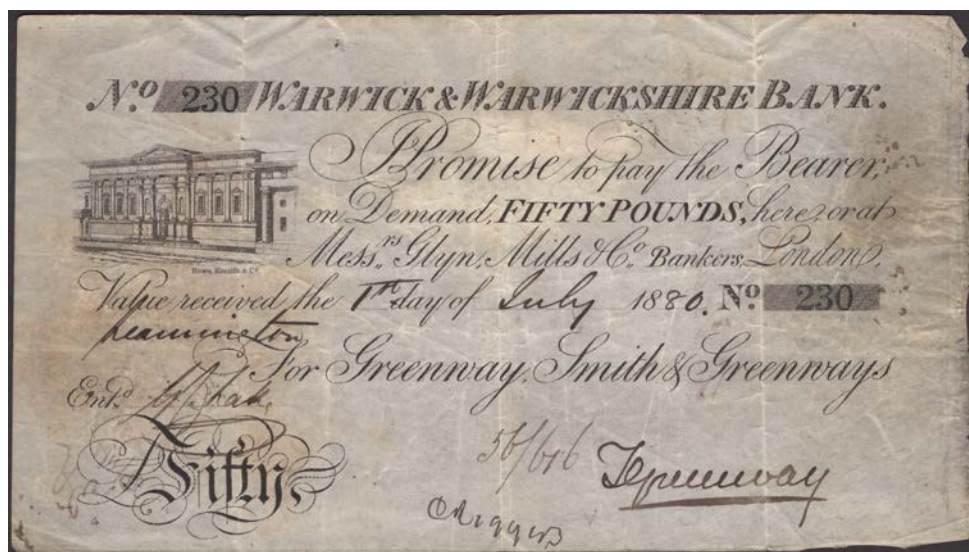 No. 230 WARWICK & WARWICKSHIRE BANK.
I Promise to pay the Bearer,
on Demand, FIFTY POUNDS, here or at
Messrs. Glyn, Mills & Co. Bankers London,
Value received the 1st day of July 1880. No. 230
Leamington
For Greenway, Smith & Greenways
Entd.
Fifty
56/676
TGreenway